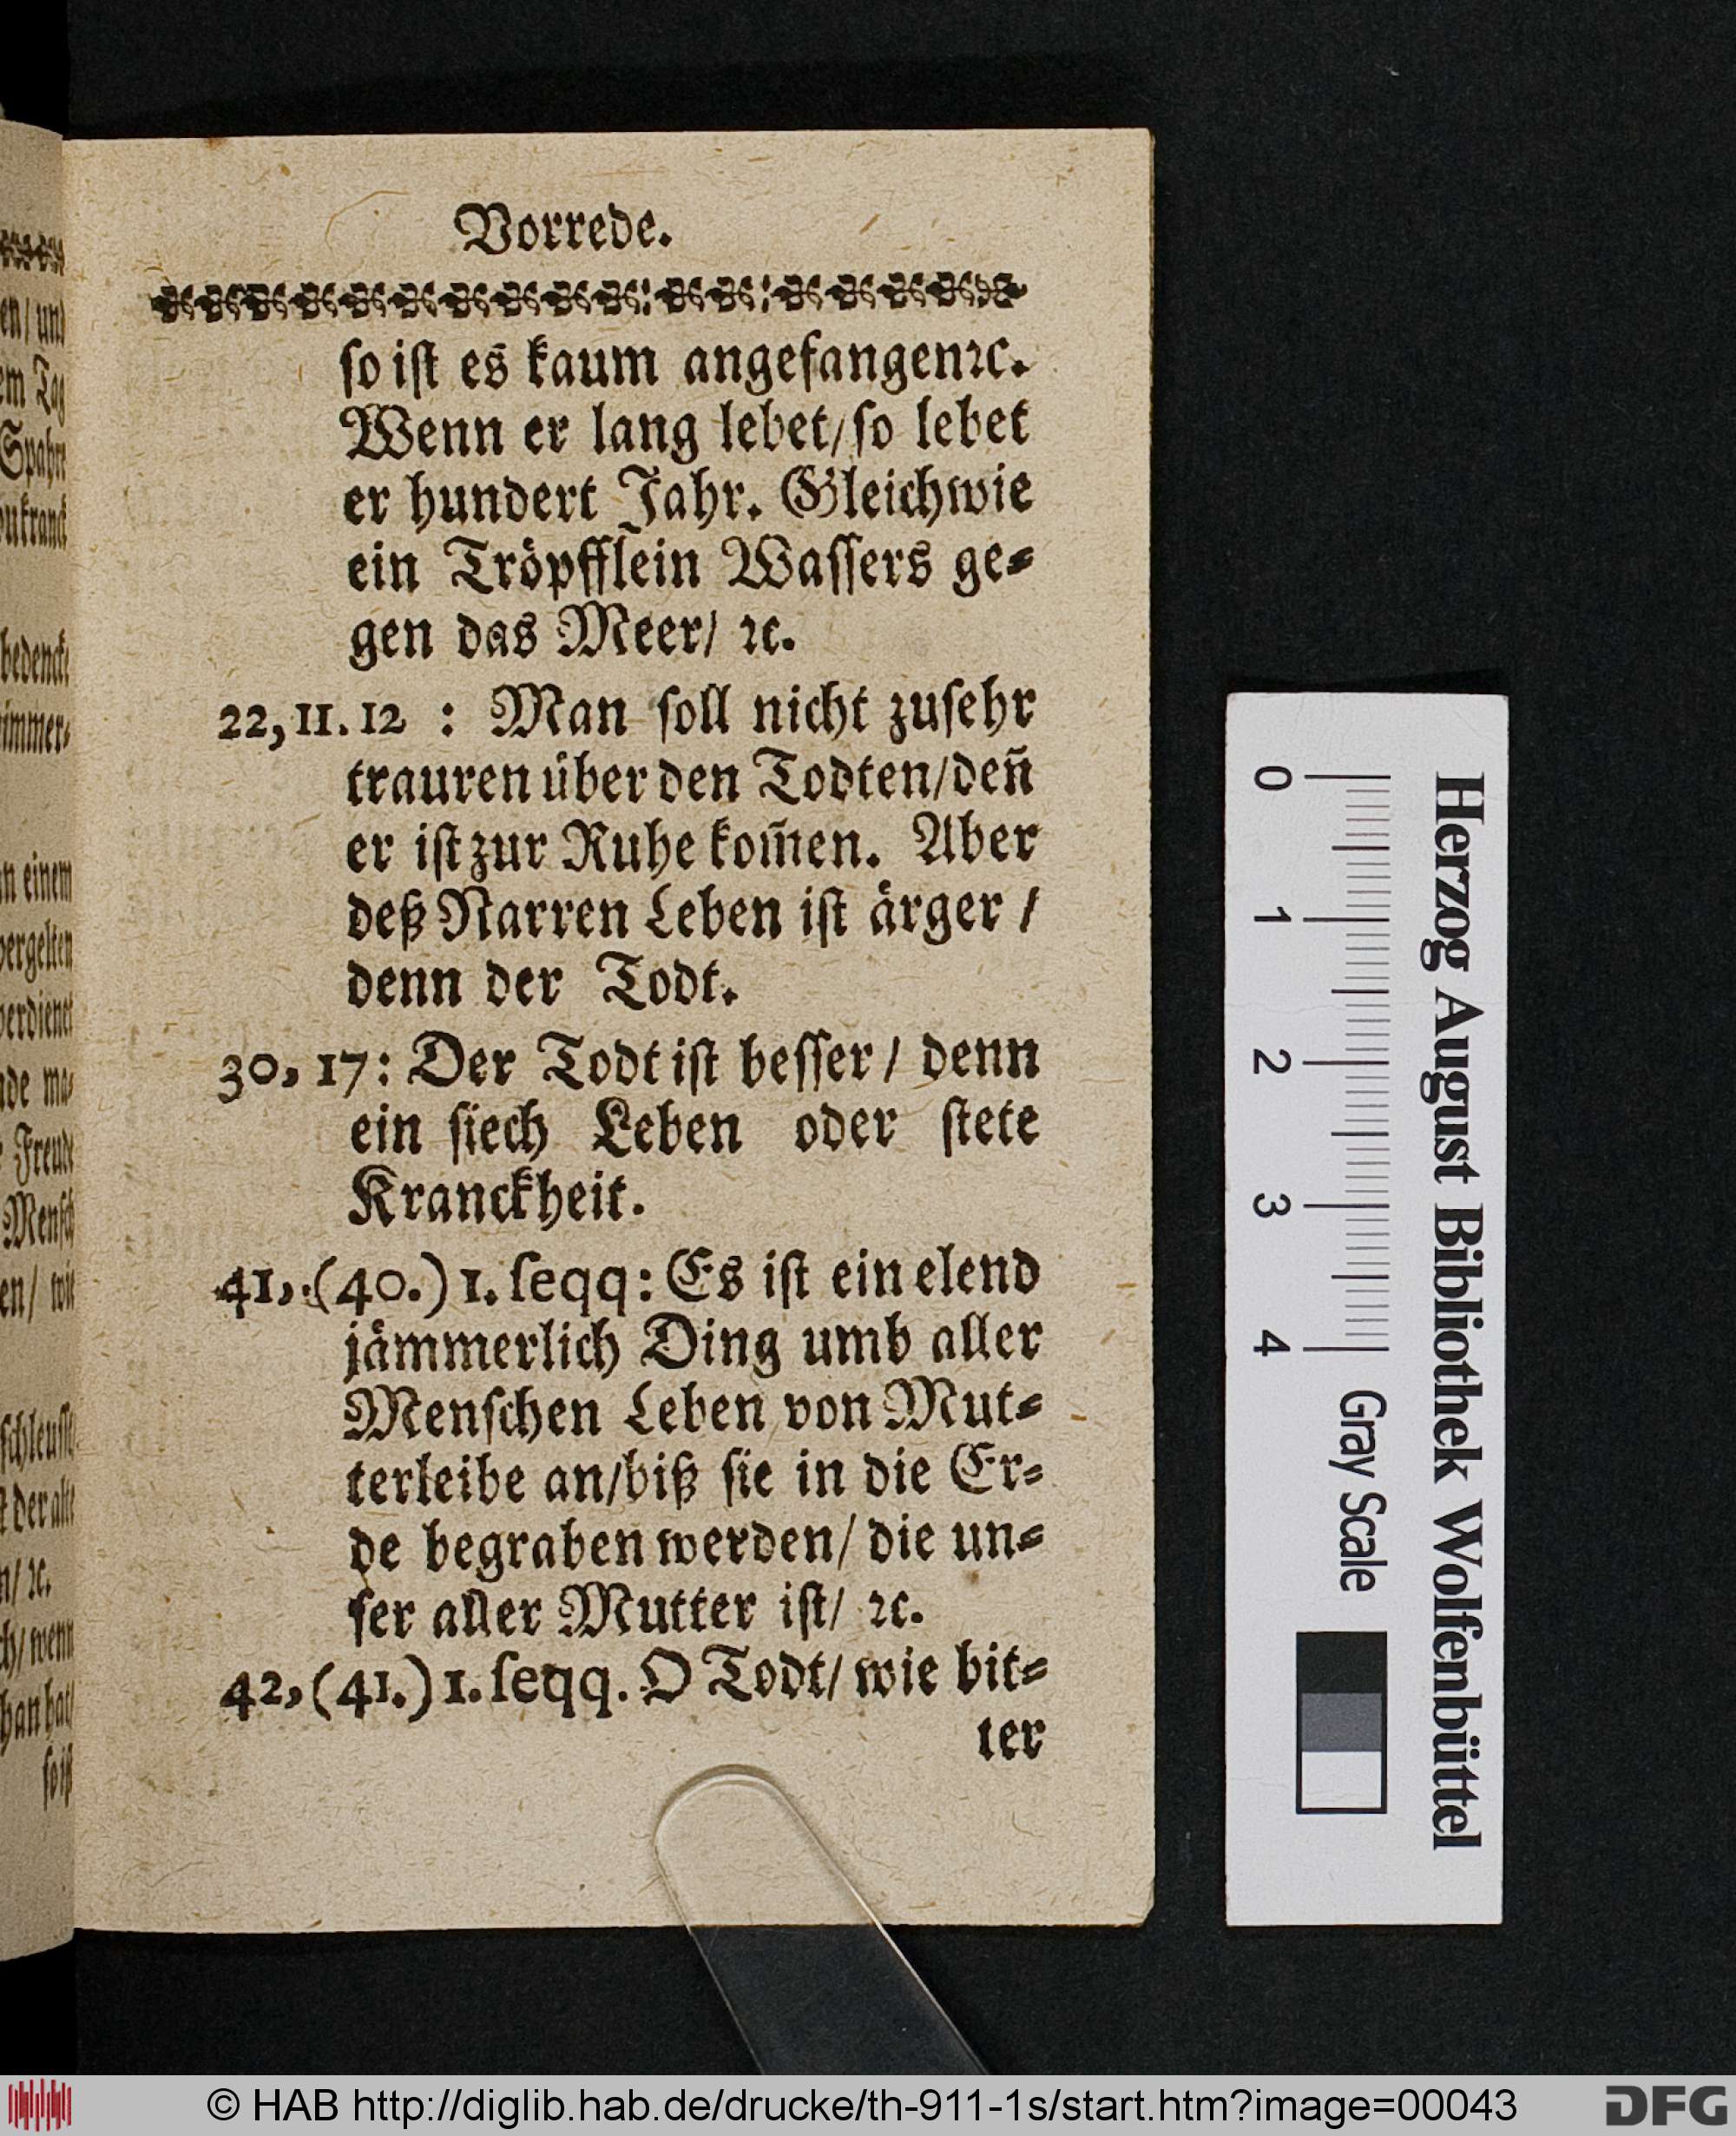 Vorrede.
ſo iſt es kaum angefangenꝛc.
Wenn er lang lebet/ſo lebet
er hundert Jahr. Gleichwie
ein Troͤpfflein Waſſers ge⸗
gen das Meer/ ꝛc.
22, 11. 12 : Man ſoll nicht zuſehr
trauren uͤber den Todten/den̄
er iſt zur Ruhe kom̄en. Aber
deß Narren Leben iſt aͤrger /
denn der Todt.
30, 17: Der Todt iſt beſſer / denn
ein ſiech Leben oder ſtete
Kranckheit.
41, (40.) 1. ſeqq: Es iſt ein elend
jaͤmmerlich Ding umb aller
Menſchen Leben von Mut⸗
terleibe an/biß ſie in die Er⸗
de begraben werden/ die un⸗
ſer aller Mutter iſt/ ꝛc.
42, (41.) 1. ſeqq. O Todt/ wie bit⸗
ter
en/ und
em Tag
bedencke
immer⸗
n einem
vergelten
verdienet
de ma⸗
Freude
Menſch
en/ wie
ſchleuſſt
n/ ꝛc.
ch/ wenn
han hat/
ſo iſt
Herzog August Bibliothek Wolfenbüttel
0 1 2 3 4 Gray Scale
© HAB http://diglib.hab.de/drucke/th-911-1s/start.htm?image=00043
DFG